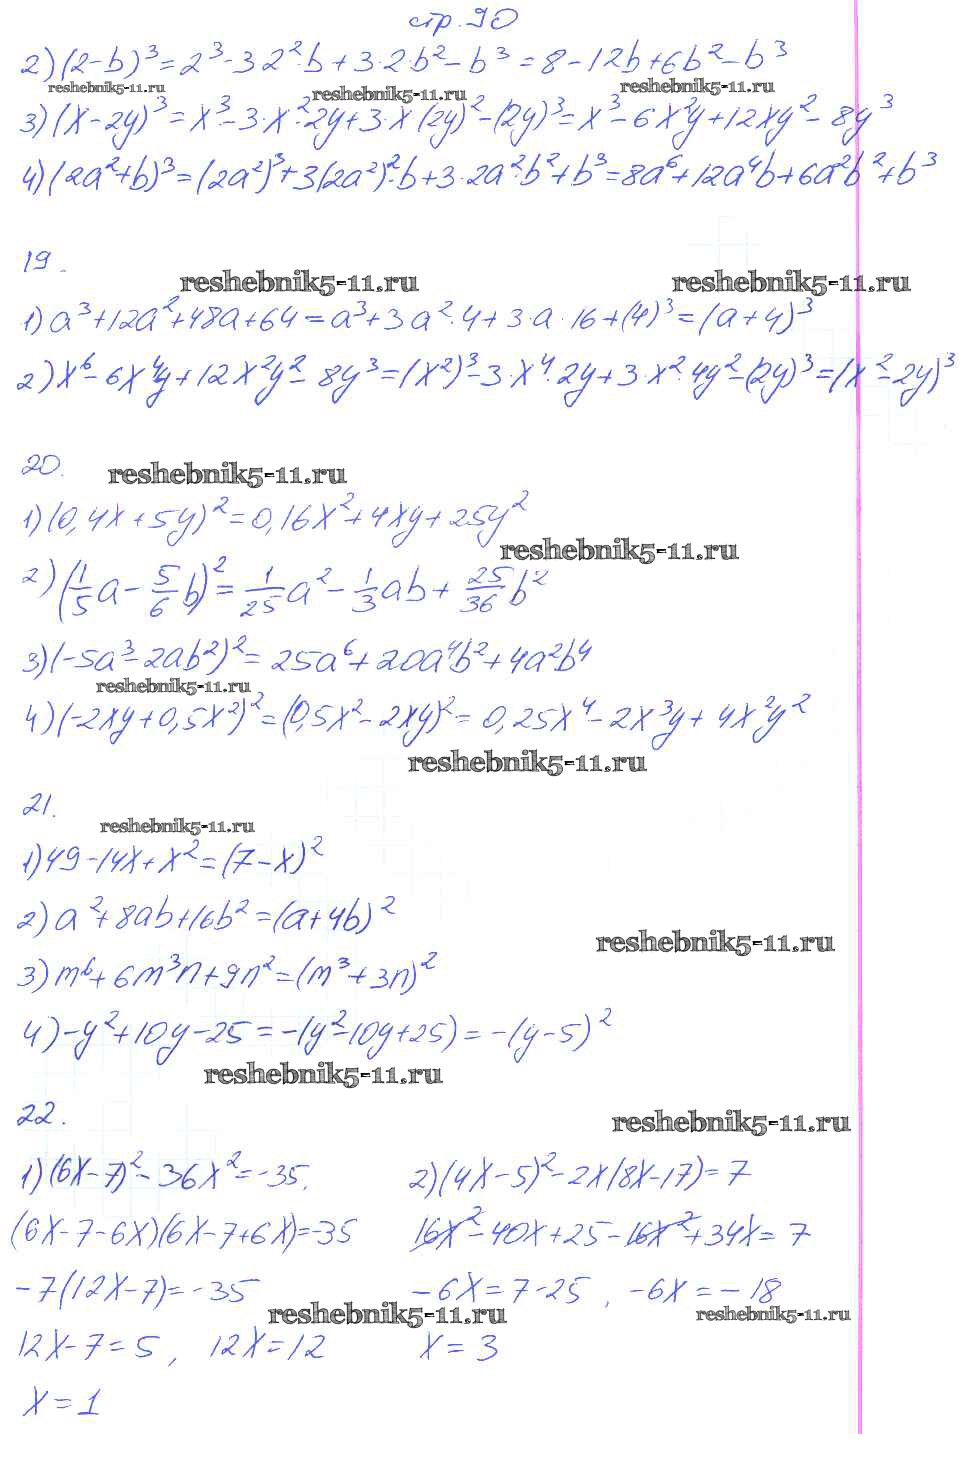 стр. 90
2) (2-b)³ = 2³ - 3·2²·b + 3·2·b² - b³ = 8 - 12b + 6b² - b³
reshebnik5-11.ru reshebnik5-11.ru reshebnik5-11.ru
3) (x-2y)³ = x³ - 3·x²·2y + 3·x·(2y)² - (2y)³ = x³ - 6x²y + 12xy² - 8y³
4) (2a²+b)³ = (2a²)³ + 3(2a²)²·b + 3·2a²·b² + b³ = 8a⁶ + 12a⁴b + 6a²b² + b³
19.
reshebnik5-11.ru reshebnik5-11.ru
1) a³ + 12a² + 48a + 64 = a³ + 3a²·4 + 3·a·16 + (4)³ = (a+4)³
2) x⁶ - 6x⁴y + 12x²y² - 8y³ = (x²)³ - 3·x⁴·2y + 3·x²·4y² - (2y)³ = (x² - 2y)³
20.
reshebnik5-11.ru
1) (0,4x + 5y)² = 0,16x² + 4xy + 25y²
reshebnik5-11.ru
2) (1/5 a - 5/6 b)² = 1/25 a² - 1/3 ab + 25/36 b²
3) (-5a³ - 2ab²)² = 25a⁶ + 20a⁴b² + 4a²b⁴
reshebnik5-11.ru
4) (-2xy + 0,5x²)² = (0,5x² - 2xy)² = 0,25x⁴ - 2x³y + 4x²y²
reshebnik5-11.ru
21.
reshebnik5-11.ru
1) 49 - 14x + x² = (7-x)²
2) a² + 8ab + 16b² = (a+4b)²
reshebnik5-11.ru
3) m⁶ + 6m³n + 9n² = (m³ + 3n)²
4) -y² + 10y - 25 = -(y² - 10y + 25) = -(y-5)²
reshebnik5-11.ru
22.
reshebnik5-11.ru
1) (6x-7)² - 36x² = -35.
(6x-7-6x)(6x-7+6x) = -35
-7(12x-7) = -35
12x-7 = 5, 12x = 12
x = 1
2) (4x-5)² - 2x(8x-17) = 7
16x² - 40x + 25 - 16x² + 34x = 7
-6x = 7-25, -6x = -18
reshebnik5-11.ru reshebnik5-11.ru
x = 3